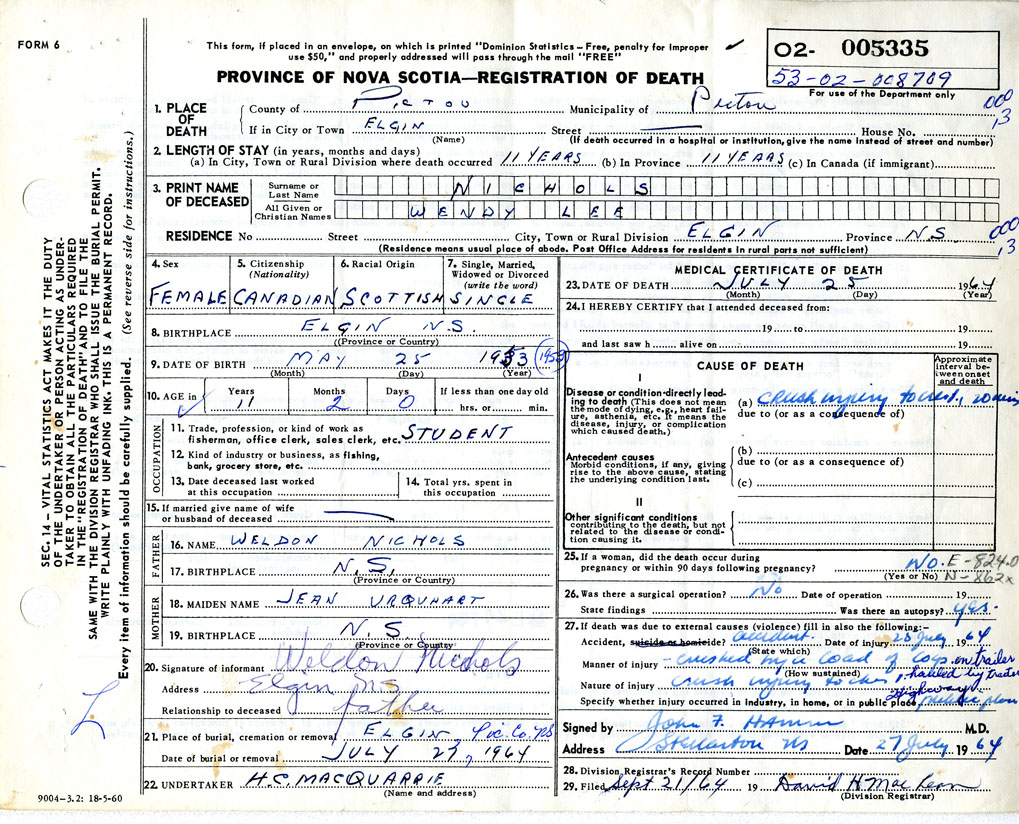 FORM 6
This form, if placed in an envelope, on which is printed "Dominion Statistics – Free, penalty for improper
use $50," and properly addressed will pass through the mail "FREE"
PROVINCE OF NOVA SCOTIA—REGISTRATION OF DEATH
02- 005335
53-02-008709
For use of the Department only
1. PLACE OF DEATH
County of Pictou Municipality of Pictou 000
If in City or Town ELGIN Street House No. 13
(Name) (If death occurred in a hospital or institution, give the name instead of street and number)
2. LENGTH OF STAY (in years, months and days)
(a) In City, Town or Rural Division where death occurred 11 YEARS (b) In Province 11 YEARS (c) In Canada (if immigrant)
3. PRINT NAME OF DECEASED
Surname or Last Name NICHOLS
All Given or Christian Names WENDY LEE
RESIDENCE No Street City, Town or Rural Division ELGIN Province N.S. 000
(Residence means usual place of abode. Post Office Address for residents in rural parts not sufficient) 13
4. Sex FEMALE
5. Citizenship (Nationality) CANADIAN
6. Racial Origin SCOTTISH
7. Single, Married, Widowed or Divorced (write the word) SINGLE
8. BIRTHPLACE ELGIN N.S.
(Province or Country)
9. DATE OF BIRTH MAY 25 1953 (1953)
(Month) (Day) (Year)
10. AGE in Years Months Days If less than one day old
11 2 0 hrs. or min.
OCCUPATION
11. Trade, profession, or kind of work as
fisherman, office clerk, sales clerk, etc. STUDENT
12. Kind of industry or business, as fishing,
bank, grocery store, etc.
13. Date deceased last worked
at this occupation
14. Total yrs. spent in
this occupation
15. If married give name of wife
or husband of deceased
FATHER
16. NAME WELDON NICHOLS
17. BIRTHPLACE N.S.
(Province or Country)
MOTHER
18. MAIDEN NAME JEAN URQUHART
19. BIRTHPLACE N.S.
(Province or Country)
20. Signature of informant Weldon Nichols
Address Elgin N.S
Relationship to deceased father
21. Place of burial, cremation or removal ELGIN, Pic. Co. NS
Date of burial or removal JULY 27, 1964
22. UNDERTAKER H.C. MACQUARRIE
(Name and address)
9004-3.2: 18-5-60
MEDICAL CERTIFICATE OF DEATH
23. DATE OF DEATH JULY 25 1964
(Month) (Day) (Year)
24. I HEREBY CERTIFY that I attended deceased from:
19 to 19
and last saw h alive on 19
CAUSE OF DEATH
Approximate interval between onset and death
I
Disease or condition-directly leading to death (This does not mean the mode of dying, e.g., heart failure, asthenia, etc. It means the disease, injury, or complication which caused death.)
(a) crush injury to chest,
due to (or as a consequence of)
Antecedent causes
Morbid conditions, if any, giving rise to the above cause, stating the underlying condition last.
(b)
due to (or as a consequence of)
(c)
II
Other significant conditions
contributing to the death, but not related to the disease or condition causing it.
25. If a woman, did the death occur during
pregnancy or within 90 days following pregnancy? No. E-824.0
(Yes or No) N-862x
26. Was there a surgical operation? No Date of operation 19
State findings Was there an autopsy? yes.
27. If death was due to external causes (violence) fill in also the following:-
Accident, suicide or homicide? accident. Date of injury 25 July 1964
(State which)
Manner of injury - crushed by a load of logs on trailer
(How sustained) , hauled by tractor
Nature of injury crush injury to chest
Highway.
Specify whether injury occurred in industry, in home, or in public place public place
Signed by John F. Hamm M.D.
Address Stellarton NS Date 27 July 1964
28. Division Registrar's Record Number
29. Filed Sept 21/64 19 David H MacLean
(Division Registrar)
SEC. 14 – VITAL STATISTICS ACT MAKES IT THE DUTY
OF THE UNDERTAKER OR PERSON ACTING AS UNDER-
TAKER TO OBTAIN ALL THE PARTICULARS REQUIRED
IN THE "REGISTRATION OF DEATH" AND TO FILE THE
SAME WITH THE DIVISION REGISTRAR WHO SHALL ISSUE THE BURIAL PERMIT.
WRITE PLAINLY WITH UNFADING INK. THIS IS A PERMANENT RECORD.
Every item of information should be carefully supplied. (See reverse side for instructions.)